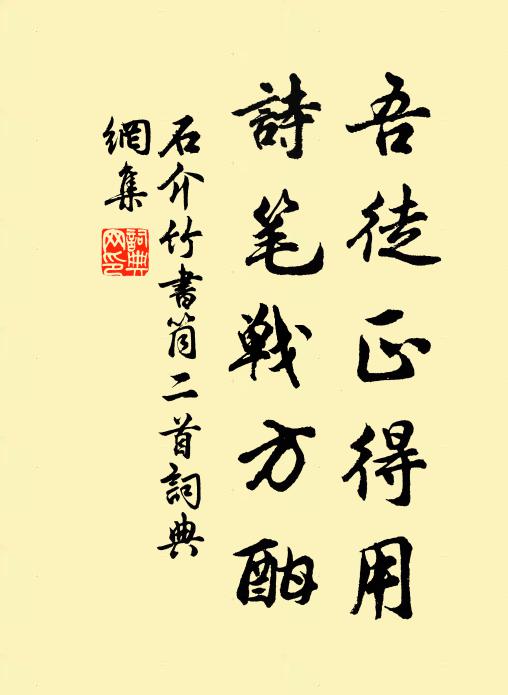 吾徒正得用
詩笔戰方酣
石介竹書筒二首詞典
網集
詞典
网印